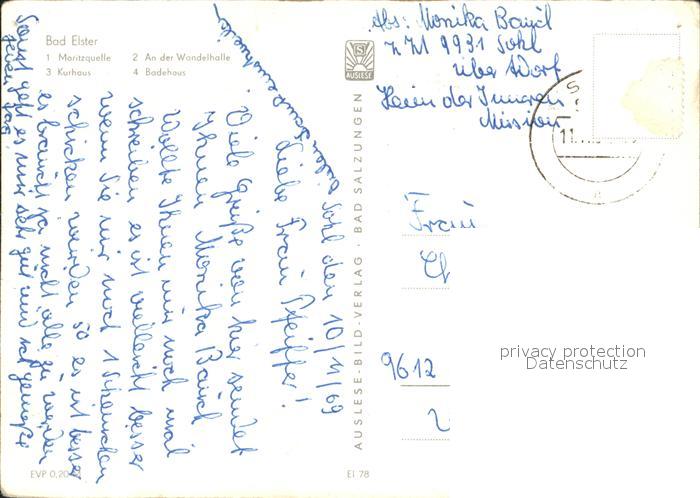 Bad Elster
1 Moritzquelle 2 An der Wandelhalle
3 Kurhaus 4 Badehaus
AUSLESE
Abs: Monika
z Zt 9931 Sohl
über Adorf
Heim der Inneren
Mission
11
Sohl den 10/11/69
Liebe Frau Pfeiffer!
Viele Grüße von hier sendet
Ihnen Monika
Wollte Ihnen nur noch mal
schreiben es ist vielleicht besser
wenn Sie mir noch 1
schicken würden so es ist besser
es braucht ja nicht alle zu werden
Sonst geht es mir sehr gut und ich
jeden Tag
vielen Dank
AUSLESE-BILD-VERLAG · BAD SALZUNGEN
Frau
9612
privacy protection
Datenschutz
EVP 0,20
El 78